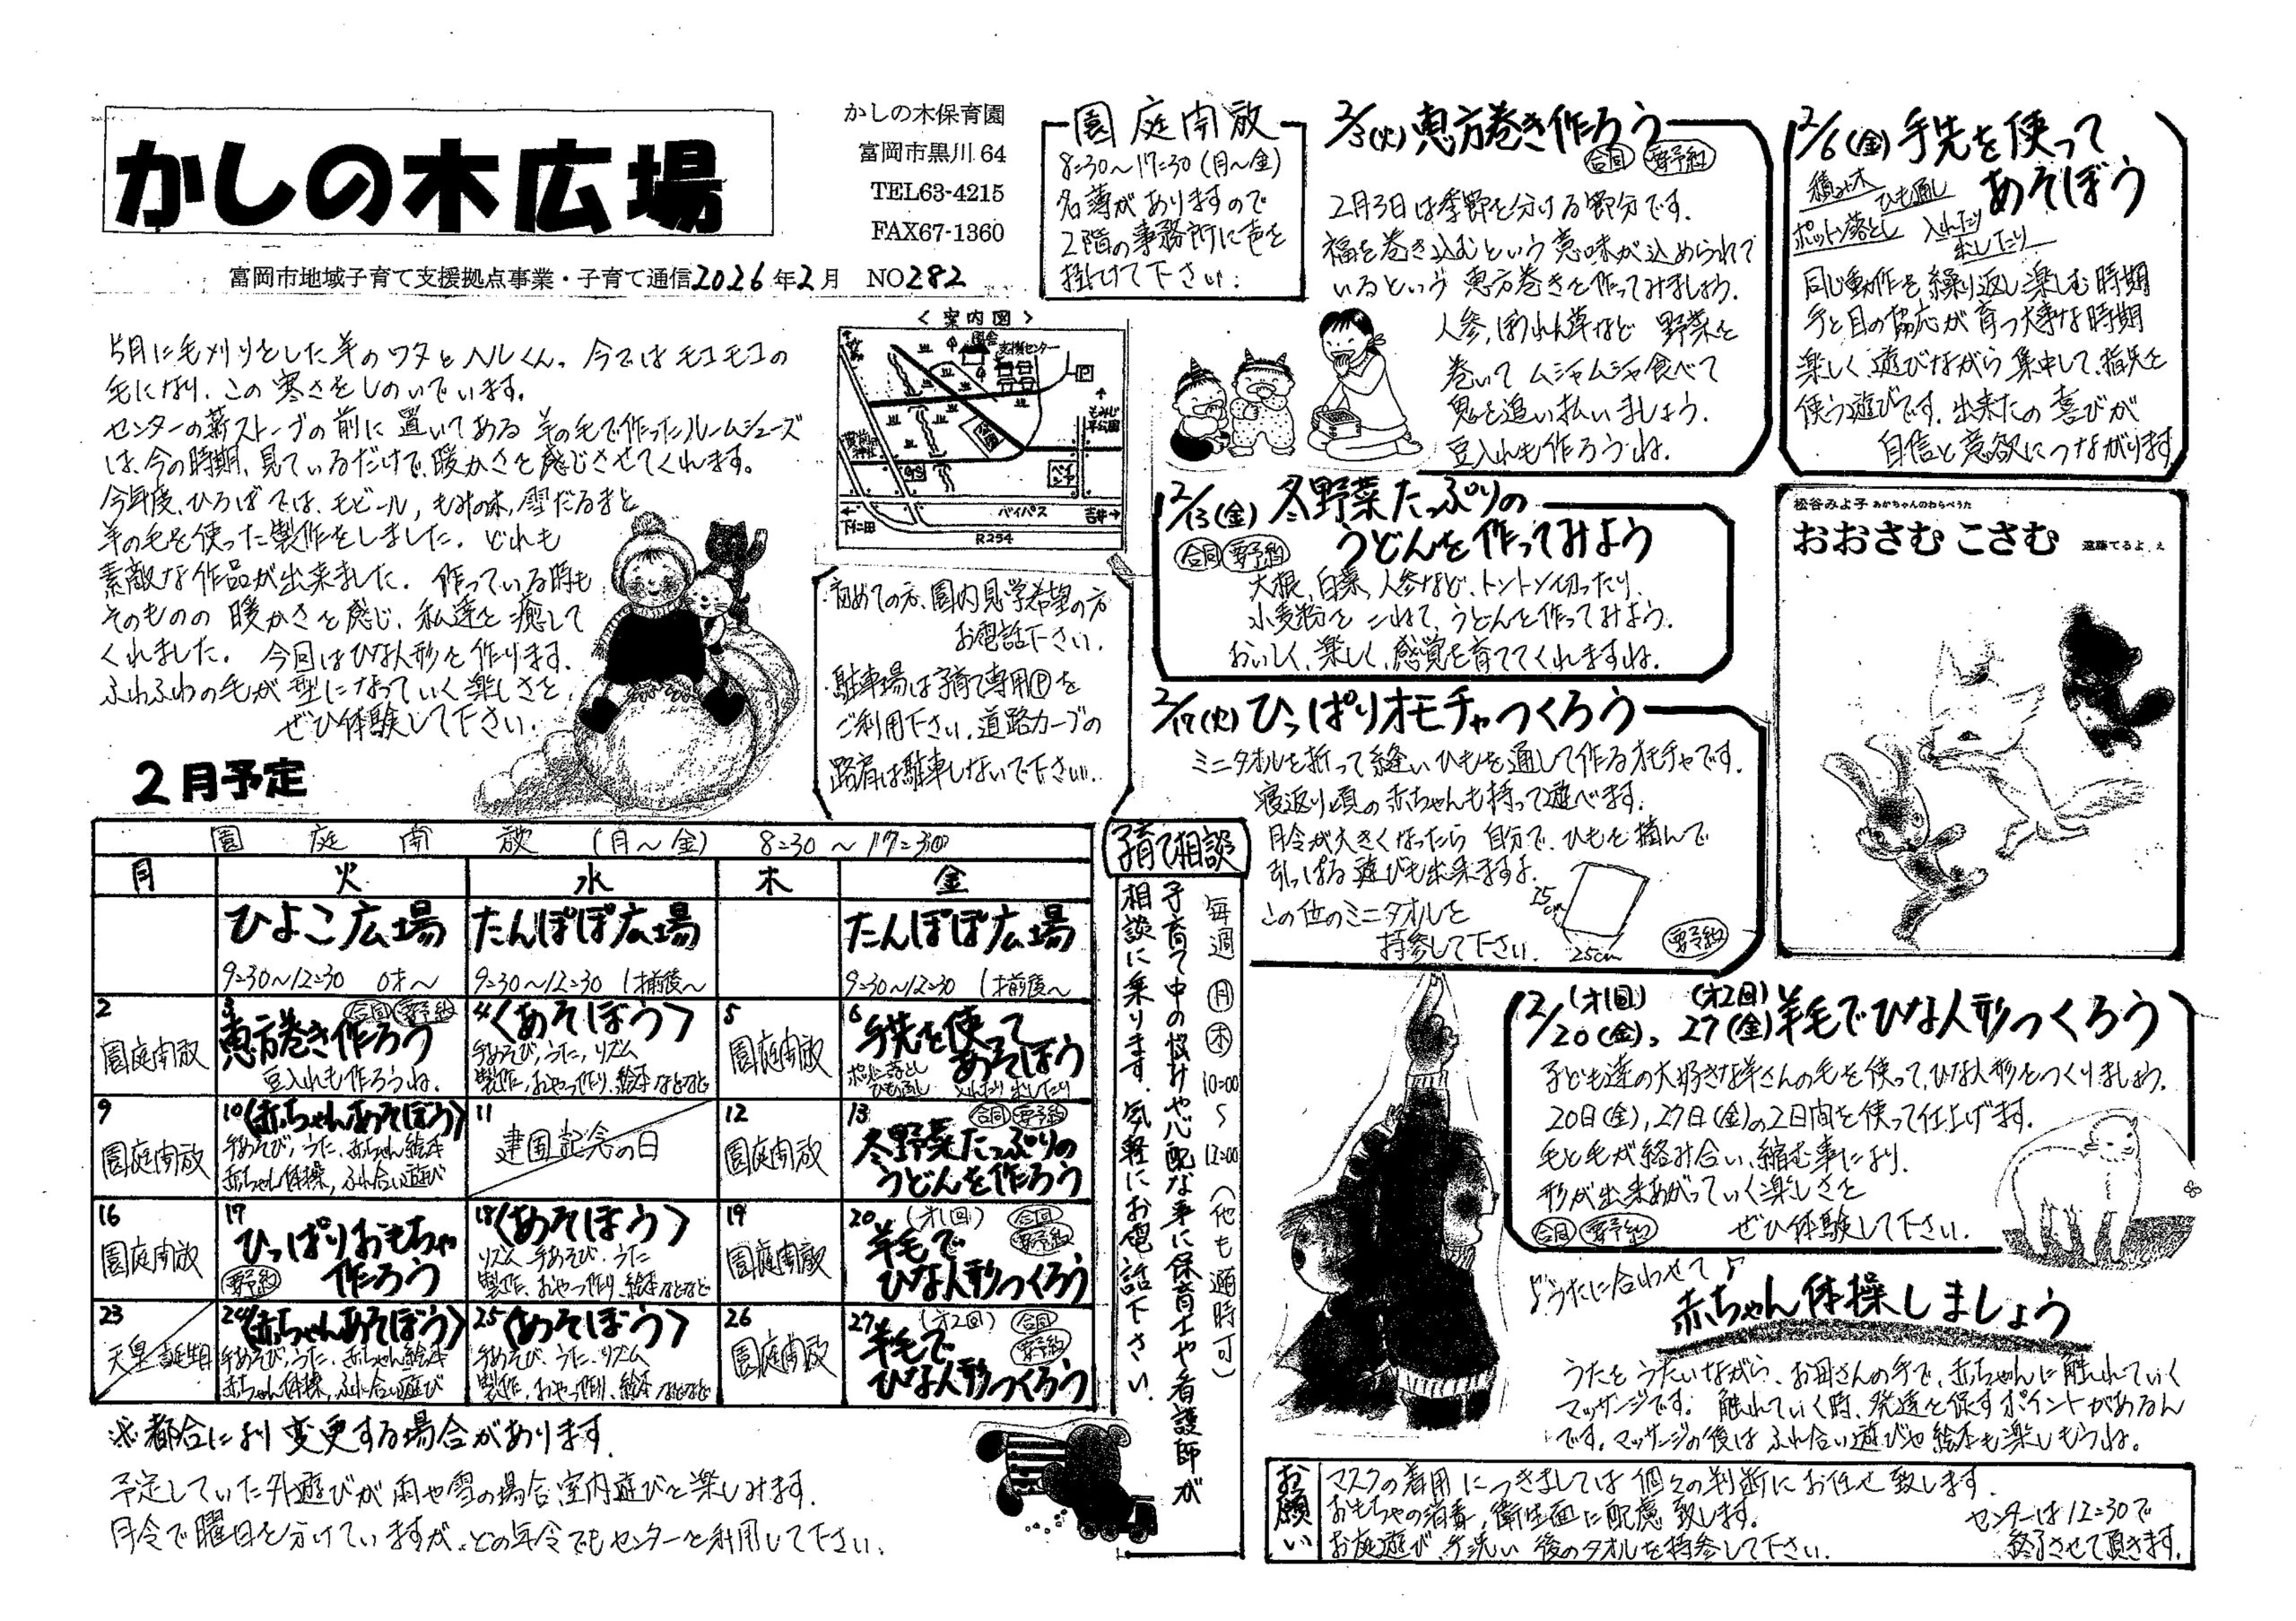 かしの木広場
かしの木保育園
富岡市黒川64
TEL63-4215
FAX67-1360
富岡市地域子育て支援拠点事業・子育て通信2026年2月 NO282
園庭開放
8:30〜17:30(月〜金)
名簿がありますので
2階の事務所に声を
掛けて下さい。
5月に毛刈りをした羊のワタとハルくん。今ではモコモコの
毛になり、この寒さをしのいでいます。
センターの薪ストーブの前に置いてある羊の毛で作ったルームシューズ
は、今の時期、見ているだけで、暖かさを感じさせてくれます。
今年度、ひろばでは、モビール、もみの木、雪だるまと
羊の毛を使った製作をしました。どれも
素敵な作品が出来ました。作っている時も
そのものの暖かさを感じ、私達を癒して
くれました。今回はひな人形を作ります。
ふわふわの毛が型になっていく楽しさを
ぜひ体験して下さい。
<案内図>
園舎
支援センター
P
もみじ平公園
GS
バイパス
下仁田
吉井
R254
初めての方、園内見学希望の方
お電話下さい。
駐車場は子育て専用Pを
ご利用下さい。道路カーブの
路肩は駐車しないで下さい。
2/3(火)恵方巻き作ろう
合同 要予約
2月3日は季節を分ける節分です。
福を巻き込むという意味が込められて
いるという恵方巻きを作ってみましょう。
人参、ほうれん草など野菜を
巻いてムシャムシャ食べて
鬼を追い払いましょう。
豆入れも作ろうね。
2/6(金)手先を使って
あそぼう
積み木 ひも通し
ポットン落とし 入れたり
出したり
同じ動作を繰り返し楽しむ時期
手と目の協応が育つ大事な時期
楽しく遊びながら集中して、指先を
使う遊びです。出来たの喜びが
自信と意欲につながります
2/13(金)冬野菜たっぷりの
うどんを作ってみよう
合同 要予約
大根、白菜、人参など、トントン切ったり、
小麦粉をこねて、うどんを作ってみよう。
おいしく、楽しく、感覚を育ててくれますね。
松谷みよ子 あかちゃんのわらべうた
おおさむ こさむ
遠藤てるよ え
2/17(火)ひっぱりオモチャつくろう
ミニタオルを折って縫いひもを通して作るオモチャです。
寝返り頃の赤ちゃんも持って遊べます。
月令が大きくなったら自分で、ひもを掴んで
引っぱる遊びも出来ますよ。
この位のミニタオルを
持参して下さい。
25cm
25cm
要予約
2/20(金)(オ1回)、27(金)(オ2回)羊毛でひな人形つくろう
子ども達の大好きな羊さんの毛を使って、ひな人形をつくりましょう。
20日(金)、27日(金)の2日間を使って仕上げます。
毛と毛が絡み合い、縮む事により、
形が出来あがっていく楽しさを
ぜひ体験して下さい。
合同 要予約
♪うたに合わせて♪
赤ちゃん体操しましょう
うたをうたいながら、お母さんの手で、赤ちゃんに触れていく
マッサージです。触れていく時、発達を促すポイントがあるん
です。マッサージの後はふれ合い遊びや絵本も楽しもうね。
2月予定
園庭開放(月〜金) 8:30〜17:30
月 火 水 木 金
ひよこ広場 たんぽぽ広場 たんぽぽ広場
9:30〜12:30 0才〜 9:30〜12:30 1才前後〜 9:30〜12:30 1才前後〜
2 園庭開放
3 合同 要予約
恵方巻き作ろう
豆入れも作ろうね。
4〈あそぼう〉
手あそび、うた、リズム
製作、おやつ作り、絵本などなど
5 園庭開放
6 手先を使って
あそぼう
ポットン落とし
ひも通し 入れたり出したり
9 園庭開放
10〈赤ちゃんあそぼう〉
手あそび、うた、赤ちゃん絵本
赤ちゃん体操、ふれ合い遊び
11 建国記念の日
12 園庭開放
13 合同 要予約
冬野菜たっぷりの
うどんを作ろう
16 園庭開放
17 ひっぱりおもちゃ
要予約 作ろう
18〈あそぼう〉
リズム、手あそび、うた
製作、おやつ作り、絵本などなど
19 園庭開放
20(オ1回) 合同 要予約
羊毛で
ひな人形つくろう
23 天皇誕生日
24〈赤ちゃんあそぼう〉
手あそび、うた、赤ちゃん絵本
赤ちゃん体操、ふれ合い遊び
25〈あそぼう〉
手あそび、うた、リズム
製作、おやつ作り、絵本などなど
26 園庭開放
27(オ2回) 合同 要予約
羊毛で
ひな人形つくろう
※都合により変更する場合があります。
予定していた外遊びが雨や雪の場合、室内遊びを楽しみます。
月令で曜日を分けていますが、どの年令でもセンターを利用して下さい。
子育て相談
毎週月木10:00〜12:00(他も適時可)
子育て中の悩みや心配な事に保育士や看護師が
相談に乗ります。気軽にお電話下さい。
お願い
マスクの着用につきましては個々の判断にお任せ致します。
おもちゃの消毒、衛生面に配慮致します。
お庭遊び、手洗い後のタオルを持参して下さい。
センターは12:30で
終了させて頂きます。